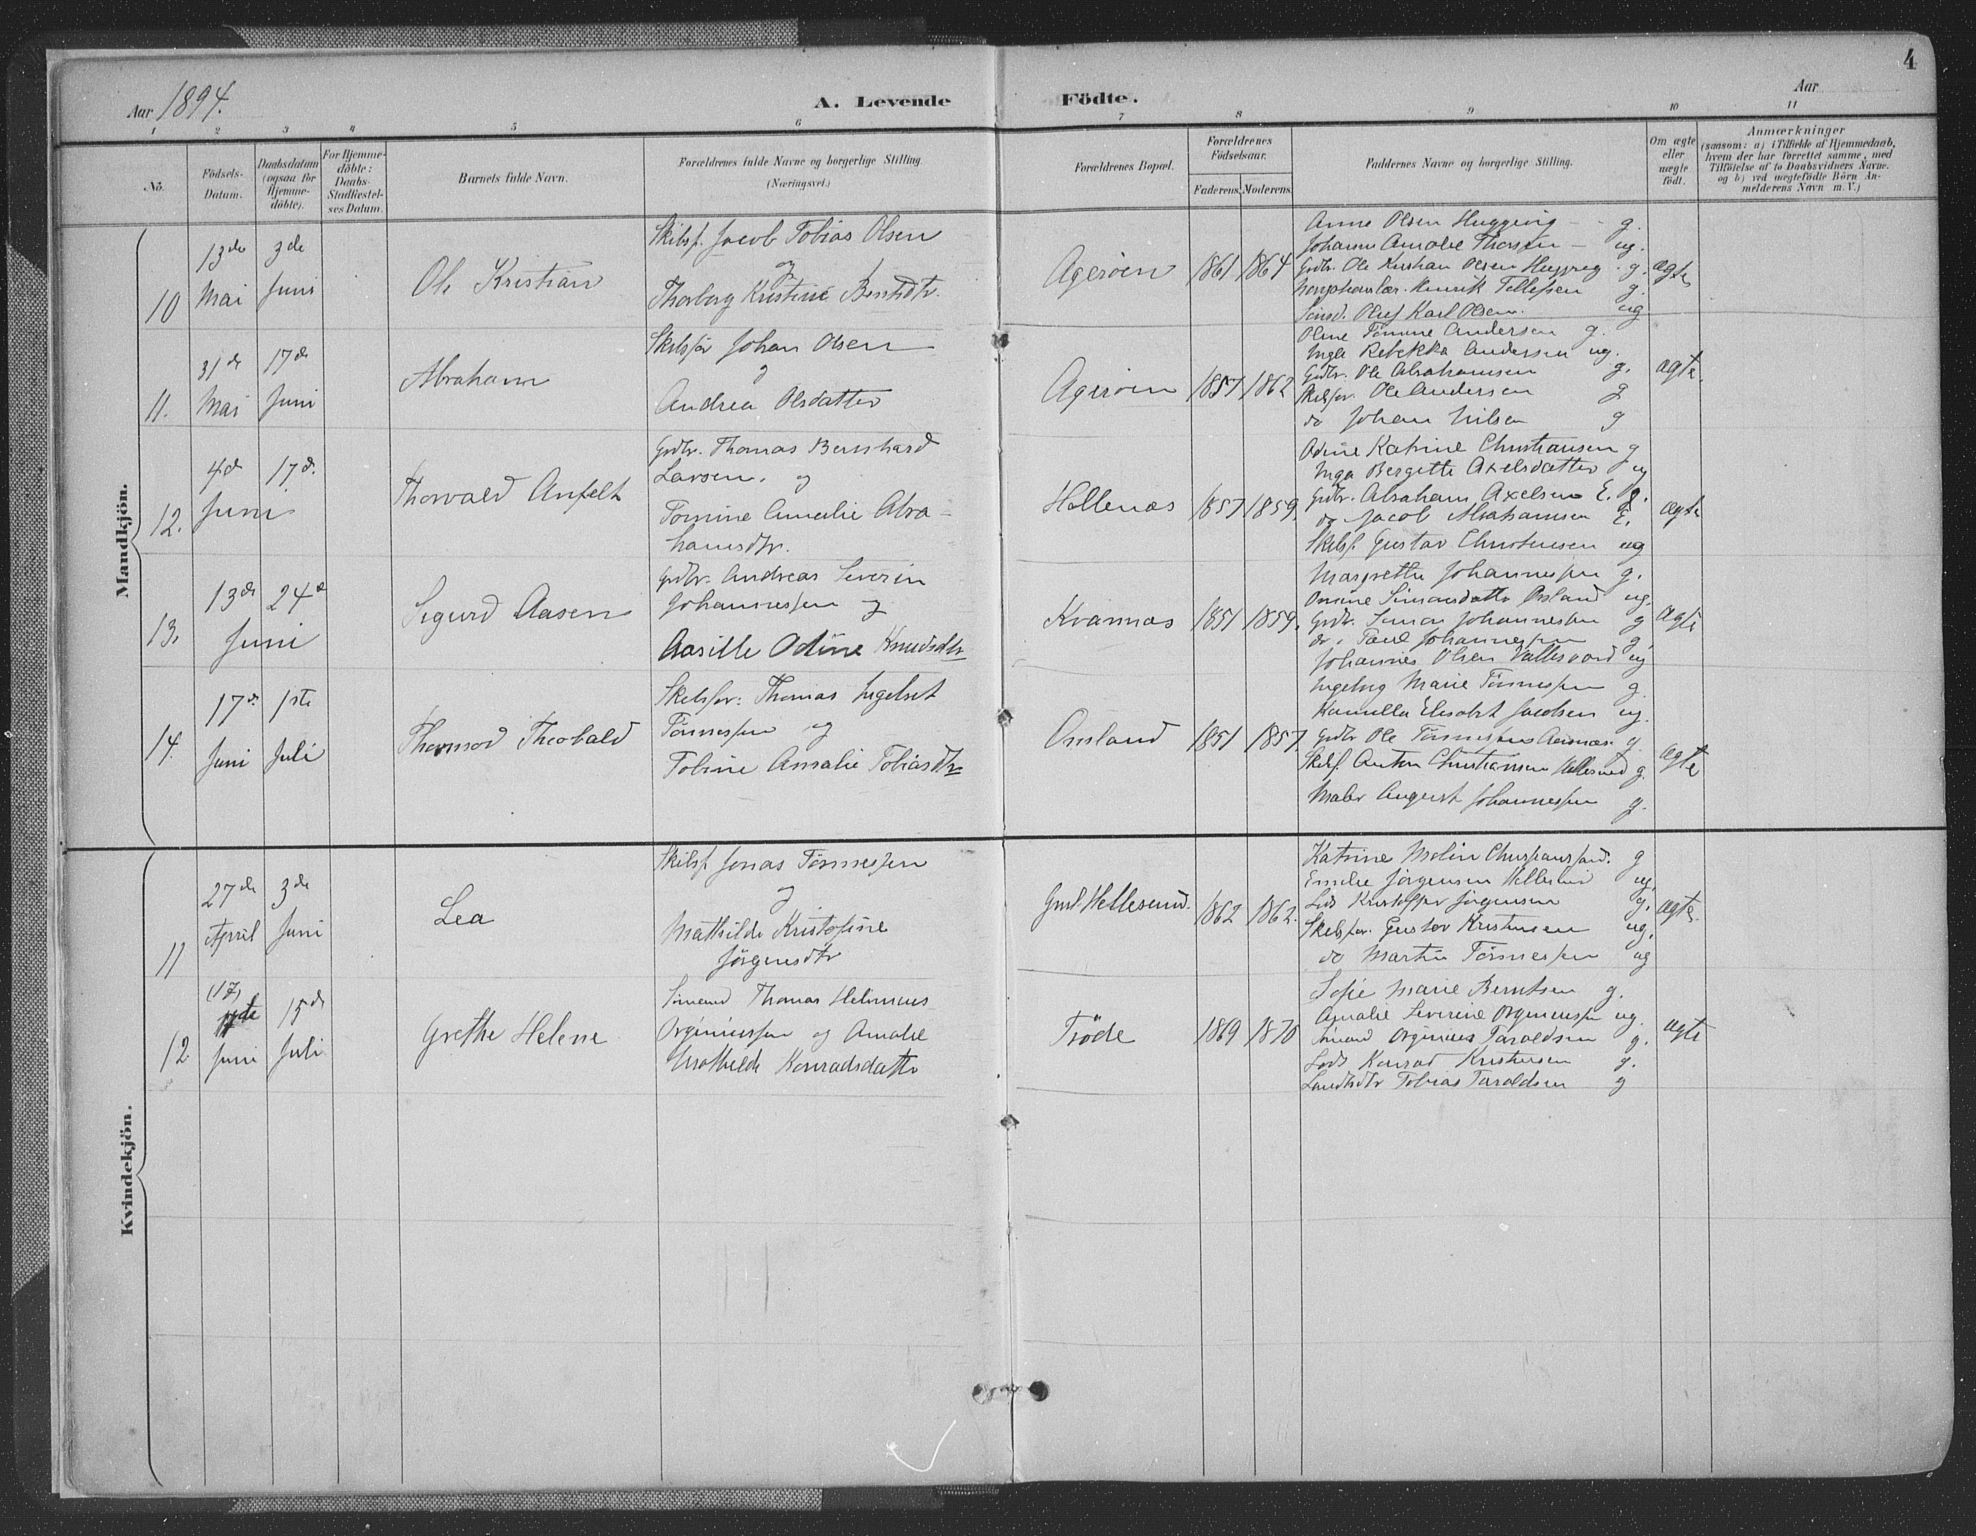 4
Aar 1894.
A. Levende Födte.
Aar
1 2 3 4 5 6 7 8 9 10 11
No.
Födsels-Datum.
Daabsdatum (ogsaa for Hjemmedöbte).
For Hjemmedöbte: Daabs-Stadfæstelses Datum.
Barnets fulde Navn.
Forældrenes fulde Navne og borgerlige Stilling.
(Næringsvei.)
Forældrenes Bopæl.
Forældrenes Födselsaar.
Faderens. Moderens.
Faddernes Navne og borgerlige Stilling.
Om ægte eller uægte födt.
Anmærkninger
(saasom: a) i Tilfælde af Hjemmedaab, hvem der har forrettet samme, med Tilföielse af to Daabsvidners Navne, og b) ved uægtefödte Börn Anmelderens Navn m. V.)
Mandkjön.
10
13de Mai
3de Juni
Ole Kristian
Skibsf. Jacob Tobias Olsen
og
Thorborg Kristine Berntsdtr.
Ageröen
1861 1864
Anne Olsen g.
Johanne Amalie ug.
Grdbr. Ole Kristian Olsen g.
Henrik Tellefsen g.
Olaf Karl Olsen. ug
ægte
11.
31de Mai
17de Juni
Abraham
Skibsför Johan Olsen
og
Andrea Olsdatter
Ageröen
1857 1862
Oline Tomine Andersen g.
Inga Rebekka Andersen ug.
Grdbr. Ole Abrahamsen g.
Skibsför. Ole Andersen g
do Johan Nilsen g
ægte.
12.
4de Juni
17de.
Thorvald Anfelt
Grdbr. Thomas Bernhard
Larsen. og
Tomine Amalie Abra-
hamsdtr.
Hellenæs
1857 1859.
Odine Katrine Christiansen g
Inga Bergette Axelsdatter ug
Grdbr. Abraham Axelsen E. g.
do Jacob Abrahamsen E.
Skibsf. Gustav Christensen ug
ægte
13.
13de Juni
24de
Sigurd Aasen
Grdbr. Andreas Severin
Johannessen og
Aasille Odine Knudsdtr
Kvannæs
1851 1859.
Margrethe Johannessen g.
Simonsdatter ug.
Grdbr. Simon Johannessen g
do. Paul Johannessen g
Johannes Olsen ug
ægte
14.
17de Juni
1ste Juli
Thormod Theobald
Skibsför: Thomas Ingelset
Tönnessen og
Tobine Amalie Tobiasdtr
Omland
1851 1857
Ingeborg Marie Tönnessen g.
Kamilla Elisabet Jacobsen ug.
Grdbr Ole Tönnessen g.
Skibsf. Anton Christiansen Hellesund g.
Maler August Johannessen g.
ægte
Kvindekjön.
11
27de April
3de Juni
Lea
Skibsf Jonas Tönnessen
og
Mathilde Kristofine
Jörgensdtr
Hellesund.
1862 1862.
Katrine g
Emilie Jörgensen Hellesund ug.
Lods Kristoffer Jörgensen g.
Skibsför. Gustav Kristensen ug.
do Martin Tönnessen ug
ægte.
12
(17)de Juni
15de Juli
Grethe Helene
Sömand Thomas Helmius
Orginiussen og Amalie
Mathilde Konradsdatter
Tröde
1869 1870
Sofie Marie Berntsen g.
Amalie Severine Orginiussen ug.
Sömand Orginius Taraldsen g.
Lods Konrad Kristensen g.
Tobias Taraldsen g
ægte